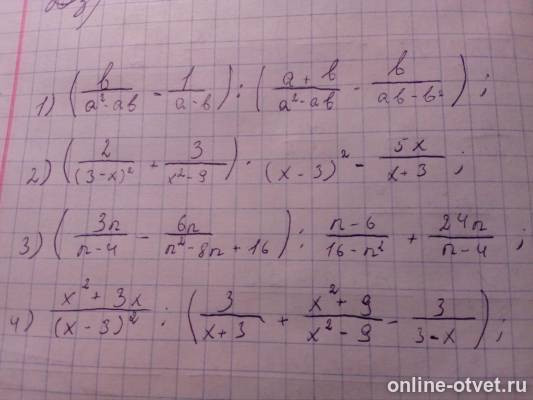 1) (b/(a²-ab) - 1/(a-b)) : ((a+b)/(a²-ab) - b/(ab-b²)) ;
2) (2/(3-x)² + 3/(x²-9)) · (x-3)² - 5x/(x+3) ;
3) (3n/(n-4) - 6n/(n²-8n+16)) : (n-6)/(16-n²) + 24n/(n-4) ;
4) (x²+3x)/(x-3)² : (3/(x+3) + (x²+9)/(x²-9) - 3/(3-x)) ;
online-otvet.ru